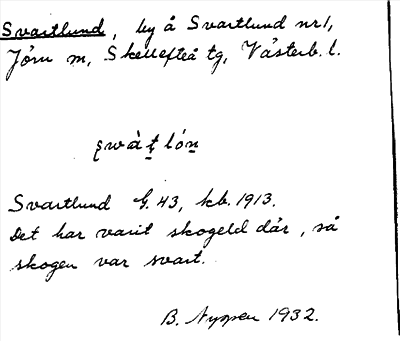 Svartlund, by å Svartlund nr 1,
Jörn sn, Skellefteå tg, Västerb. l.
Svartlund G. 43, kb. 1913.
Det har varit skogeld där, så
skogen var svart.
B. Nyssen 1932.